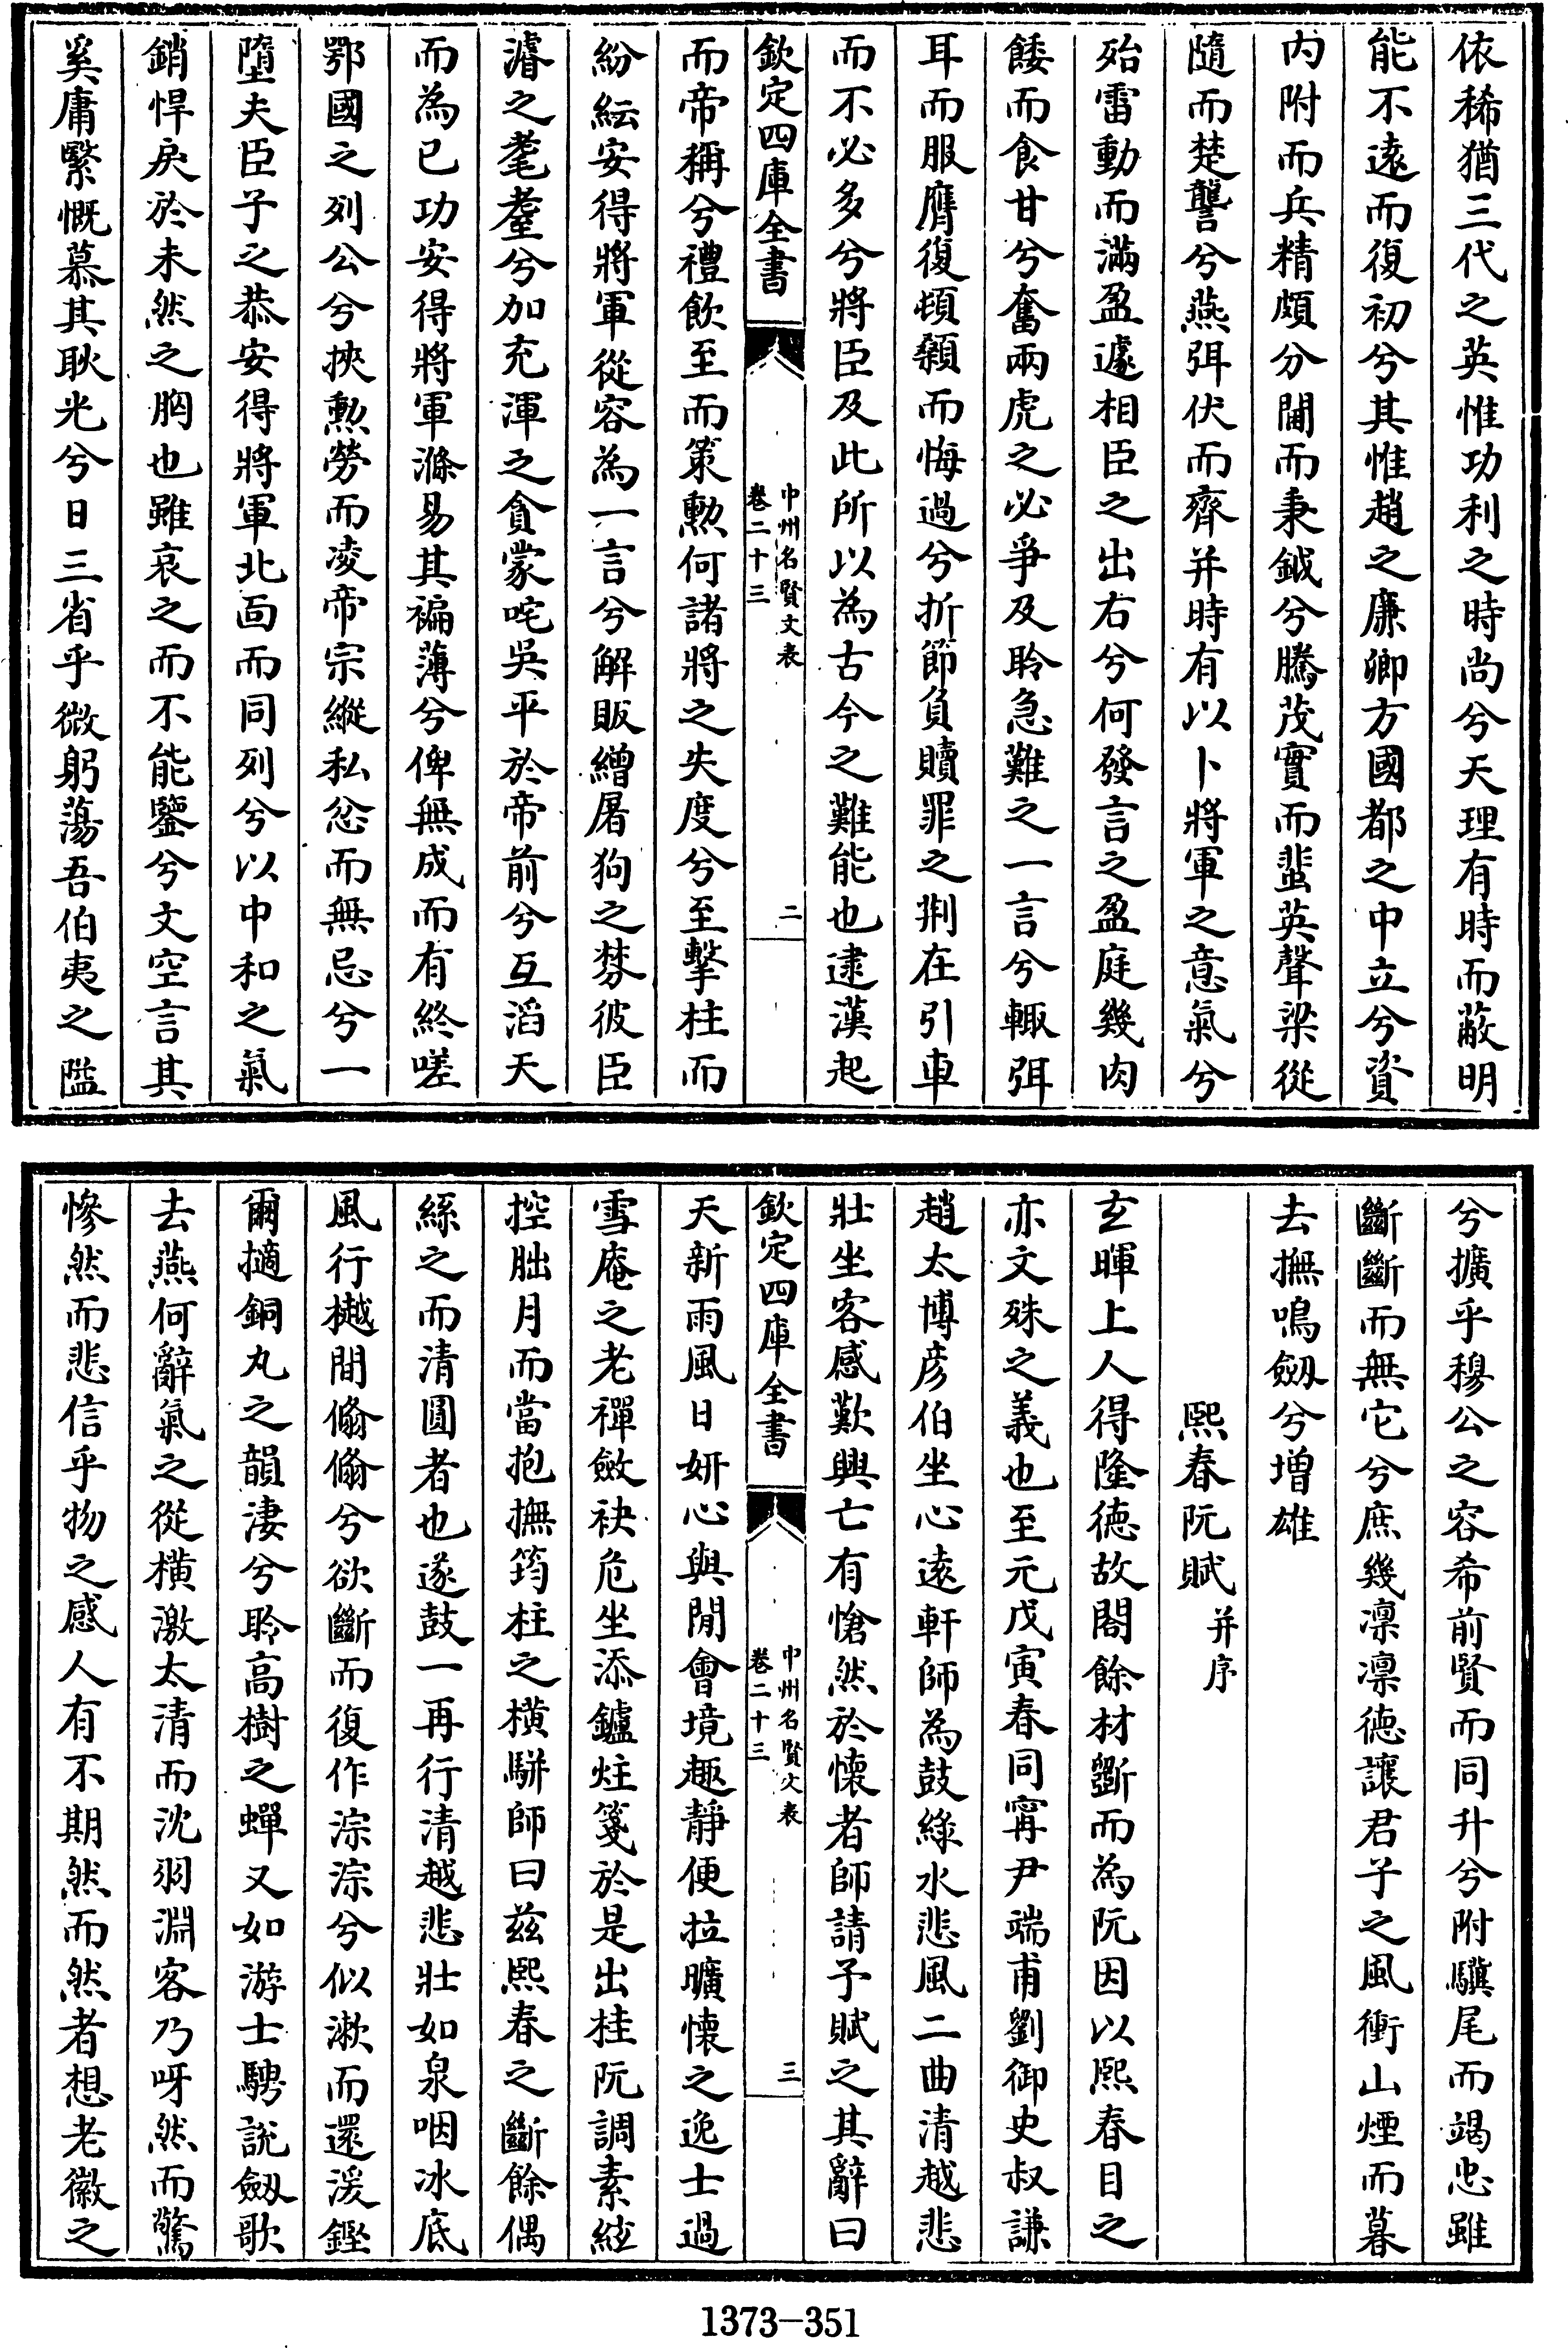 依稀猶三代之英惟功利之時尚兮天理有時而蔽明
能不遠而復初兮其惟趙之廉卿方國都之中立兮資
内附而兵精頗分閫而秉鉞兮騰茂實而蜚英聲梁從
隨而楚讋兮燕弭伏而齊并時有以卜將軍之意氣兮
殆雷動而滿盈遽相臣之出右兮何發言之盈庭幾肉
餧而食甘兮奮兩虎之必爭及聆急難之一言兮輙弭
耳而服膺復頓顙而悔過兮折節負贖罪之荆在引車
而不必多兮將臣及此所以為古今之難能也逮漢起
欽定四庫全書
中州名賢文表
卷二十三
二
而帝稱兮禮飲至而策勲何諸將之失度兮至擊柱而
紛紜安得將軍從容為一言兮解販繒屠狗之棼彼臣
濬之耄耋兮加充渾之貪蒙咤吳平於帝前兮互滔天
而為已功安得將軍滌易其褊薄兮俾無成而有終嗟
鄂國之列公兮挾勲勞而凌帝宗縱私忿而無忌兮一
墮夫臣子之恭安得將軍北面而同列兮以中和之氣
銷悍戾於未然之胸也雖哀之而不能鑒兮文空言其
奚庸繄慨慕其耿光兮日三省乎微躬蕩吾伯夷之隘
兮擴乎穆公之容希前賢而同升兮附驥尾而竭忠雖
斷斷而無它兮庶幾凛凛德讓君子之風衝山煙而暮
去撫鳴劔兮增雄
熙春阮賦并序
玄暉上人得隆德故閣餘材斵而為阮因以熙春目之
亦文殊之義也至元戊寅春同甯尹端甫劉御史叔謙
趙太博彦伯坐心遠軒師為鼓綠水悲風二曲清越悲
壯坐客感歎興亡有愴然於懷者師請予賦之其辭曰
欽定四庫全書
中州名賢文表
卷二十三
三
天新雨風日妍心與閒會境趣靜便拉曠懷之逸士過
雪庵之老禪斂袂危坐添鑪炷箋於是出桂阮調素絃
控朏月而當抱撫筠柱之横駢師曰兹熙春之斷餘偶
絲之而清圓者也遂鼓一再行清越悲壯如泉咽冰底
風行樾間翛翛兮欲斷而復作淙淙兮似漱而還湲鏗
爾擿銅丸之韻淒兮聆高樹之蟬又如游士騁說劔歌
去燕何辭氣之從横激太清而沈羽淵客乃呀然而驚
慘然而悲信乎物之感人有不期然而然者想老徽之
1373-351